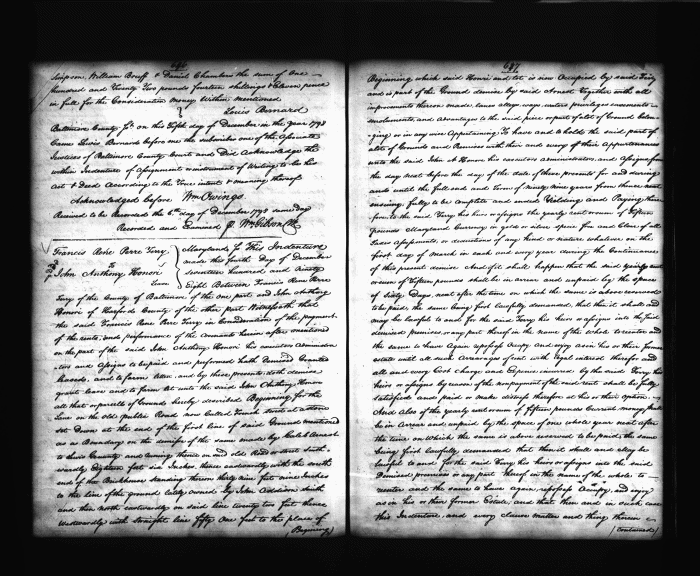 686
Simpson, William Bouff & Daniel Chambers the sum of One
hundred and Twenty Two pounds fourteen shillings & Eleven pence
in full for the Consideration Money Within mentioned
Louis Bernard
Baltimore County, Sc. on this Fifth day of December in the year 1798
Came Louis Bernard before me the subscriber one of the Associate
Justices of Baltimore County Court and Did Acknowledge the
within Indenture of Assignment or instrument of Writing to be his
Act & Deed According to the True intent & meaning thereof
Acknowledged before Wm Owings
Received to be Recorded the 6th day of December 1798 same day
Recorded and Examined Wm Gibson Clk
Francis Rene Perre Terry
to
John Anthony Honori
Lease
Maryland, Sc This Indenture
made this fourth Day of December
seventeen hundred and Ninety
Eight Between Francis Rene Perre
Terry of the County of Baltimore of the one part and John Anthony
Honori of Harford County of the other part Witnesseth that
the said Francis Rene Perre Terry in Consideration of the payment
of the rents, and performance of the covenants herein after mentioned
on the part of the said John Anthony Honori his executors Administra
tors and Assigns to be paid and performed hath Demised Granted
Leased, and to farm letten, and by these presents doth demise
grant lease and to farm let unto the said John Anthony Honori
all that or parcel of Ground hereby described Beginning for the
same on the old public Road now Called Street at a stone
set down at the end of the first line of said Ground mentioned
as a Boundary on the demise of the same made by Caleb
to Louis and running thence on old Road or street South
wardly Eighteen feet six Inches thence eastwardly with the south
end of the Brickhouse standing thereon thirty nine feet nine Inches
to the line of the ground lately owned by John Addison Smith
and then north eastwardly on said line twenty two feet thence
Westwardly with straight line fifty One feet to the place of
(Beginning)
687
Beginning which said Honori and lot is now Occupied by said Terry
and is part of the Ground demise by said Arnest Together with all
improvements thereon made, lanes alleys ways, waters privileges easements
emoluments, and advantages to the said piece or part of a lot of Ground belon
ging or in any wise Appertaining To have and to hold the said part of
a lot of Grounds and Premises with their and every of their appurtenances
unto the said John A Honori his executors administrators, and Assigns from
the day next before the day of the date of these presents for and during
and until the full end and Term of Ninety nine years from thence next
ensuing, fully to be complete and ended Yielding and Paying there
fore to the said Terry his heirs or assigns the yearly rent or sum of Fifteen
pounds Maryland Currency in gold or silver specie free and Clear of all
Taxes Assessments, or deductions of any kind or nature whatever, on the
first day of March in each and every year during the Continuance
of this present demise And if it shall happen that the said yearly rent
or sum of Fifteen pounds shall be in arrear and unpaid by the space
of Sixty Days, next after the time on which the same is above reserved
to be paid, the same being first lawfully demanded, that then it shall and
may be lawful to and for the said Terry his heirs or assigns into the said
demised premises or any part thereof in the name of the whole to reenter and
the same to have Again repossess Occupy and enjoy as in his or their former
estate until all such Arrearages of rent with legal interest therefor and
all and every Cost charge and Expence incurred by the said Terry his
heirs or assigns by reason of the nonpayment of the said rents shall be fully
satisfied and paid or make distress therefor at his or their option.
And also if the yearly rent or sum of fifteen pounds Current money, shall
be in Arrear and unpaid by the space of one whole year next after
the time on Which the same is above reserved to be paid, the same
being first lawfully demanded that then it shall and May be
lawful to and for the said Terry his heirs or assigns into the said
Demised premises or any part thereof in the name of the whole to
reenter and the same to have again repossess Occupy, and enjoy
as in his or their former Estate, and that then and in such case
this Indenture, and every clause matter and thing therein
(Contained)